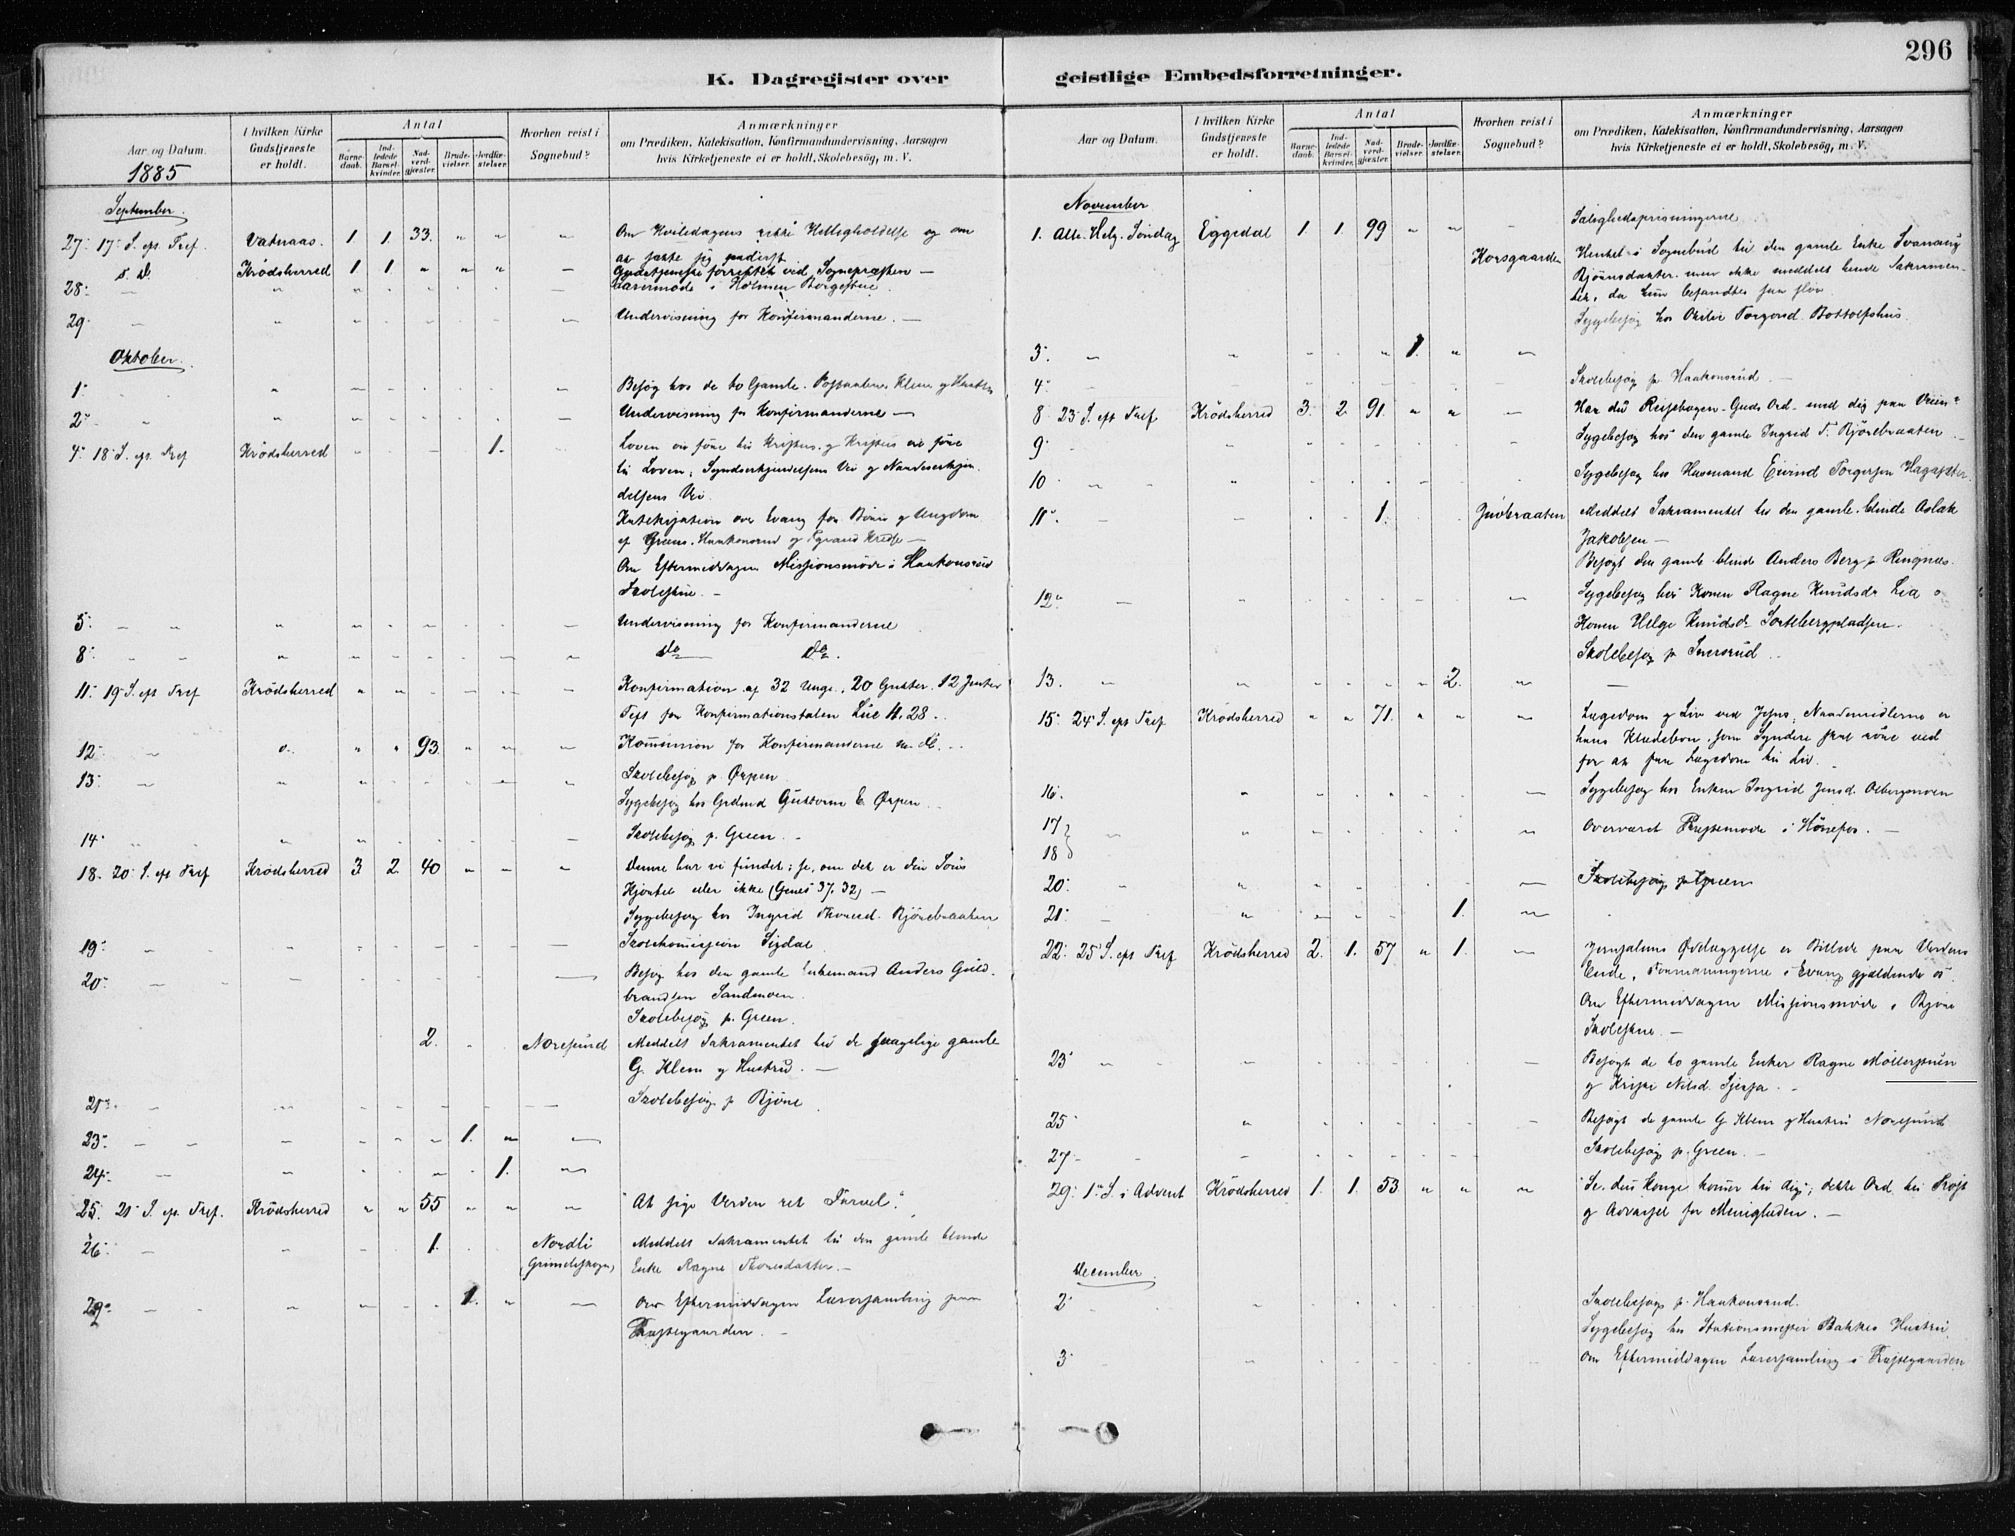 296
K. Dagregister over geistlige Embedsforretninger.
Aar og Datum.
I hvilken Kirke Gudstjeneste er holdt.
Antal
Barnedaab.
Indledede Barselkvinder.
Nadverdgjæster.
Brudevielser.
Jordfæstelser.
Hvorhen reist i Sognebud?
Anmærkninger
om Prædiken, Katekisation, Konfirmandundervisning, Aarsagen
hvis Kirketjeneste ei er holdt, Skolebesög, m. V.
1885
September.
27. 17 S. ep. Tref. Vatnaas. 1. 1. 33. " " " Om Hviledagens rette Helligholdelse og om
at sætte sig nederst
s. D. Krödsherred 1 1 " " " Gudstjeneste forrettet ved Sognepræsten
28. Lærermøde i Holmen
29. Undervisning for Konfirmanderne.
Oktober.
1. Besøg hos de to Gamle
2. Undervisning for Konfirmanderne
4. 18 S. ep. Tref Krödsherred 1. Loven os före til Kristus og Kristus os före
til Loven. Syndserkjendelsens Vei og Naadeserkjendelsens Vei.
Katekisation over Evang. for Börn og Ungdom
af Green, Haakonsrud og
Om Eftermiddagen Missjonsmöde i Haakonsrud
Skolestue.
5. Undervisning for Konfirmanderne
8. do do.
11. 19 S. eft Tref Krödsherred Konfirmation af 32 Unge, 20 Gutter, 12 Jenter
Text for Konfirmationstalen Luc 11. 28.
12. 93 Kommunion for Konfirmanderne
13. Skolebesög p. Ørpen
Sygebesög hos Grdmd Guttorm E. Ørpen.
14. Skolebesög p. Green.
18. 20 S. eft Tref Krödsherred 3. 2. 40 Denne har vi fundet; se, om det er din Söns
Kjortel eller ikke (Genes 37. 32)
Sygebesög hos Ingrid Thorsd. Björebraaten
19. Skolekomission Sigdal
20. Besög hos den gamle Enkemand Anders Guldbrandsen Sandmoen.
Skolebesög p. Green.
2. Noresund Meddelt Sakramentet til de svagelige gamle
G. Klem og Hustru.
21. Skolebesög p. Björe
23. 1.
24. 1.
25. 21 S. ep. Tref. Krödsherred 55 "At sige Verden ret Farvel."
26. 1. Nordli Meddelt Sakramentet til den gamle blinde
Enke Ragne Thorsdatter.
29. 1. Om Eftermiddagen Læsesamling paa
Præstegaarden.
Aar og Datum.
I hvilken Kirke Gudstjeneste er holdt.
Antal
Barnedaab.
Indledede Barselkvinder.
Nadverdgjæster.
Brudevielser.
Jordfæstelser.
Hvorhen reist i Sognebud?
Anmærkninger
om Prædiken, Katekisation, Konfirmandundervisning, Aarsagen
hvis Kirketjeneste ei er holdt, Skolebesög, m. V.
November
1. Alle Helg. Söndag Eggedal 1. 1. 99 Salighedsprisningerne
Korsgaarden Hentet i Sognebud til den gamle Enke
Björnsdatter, men ikke meddelt hende Sakramentet, da hun befandtes saa slöv
Sygebesög hos
3. 1.
4. Skolebesög p. Haakonsrud.
8. 23 S. eft Tref Krödsherred 3. 2. 91. Har du Reisebogen - Guds Ord - med dig paa Veien?
9. Sygebesög hos den gamle Ingrid T. Björebraaten
10. Sygebesög hos Husmand Eivind Torgersen
11. 1. Meddelt Sakramentet til den gamle blinde Aslak
Jakobsen
Besögt den gamle blinde Anders Berg p. Ringnes.
12. Sygebesög hos Konen Ragne Knudsdr Lia o
Konen Helge Knudsd.
Skolebesög p. Snersrud.
13. 2.
15. 24 S. eft Tref Krödsherred 71. Lægedom og Liv ved Jesus; Naademidlerne er
hans Klædebon, som Syndere skal röre ved
for at faa Lægedom til Liv.
16. Sygebesög hos Enken
17
18 Overværet Præstemöde i Hönefos.
20. Skolebesög p. Green
21. 1.
22. 25 S. eft Tref Krödsherred 2. 1. 57 1. Jerusalems Ødelæggelse er Billede paa Verdens
Ende, Formaningerne i Evang gjældende os
Om Eftermiddagen Missionsmöde i Björe
Skolestue.
23. Besögt de to gamle Enker Ragne Möllerstuen
og
25. Besögt de gamle G Klem og Hustru Noresund
27. Skolebesög p. Green.
29. 1ste S. i Advent Krödsherred 1. 1. 53 "Se, din Konge kommer til dig"; dette Ord til Tröst
og Advarsel for Menigheden.
December.
2. Skolebesög p. Haakonsrud.
Sygebesög hos Stationsmester Bakkes Hustru.
3. Om Eftermiddagen Læsesamling i Præstegaarden